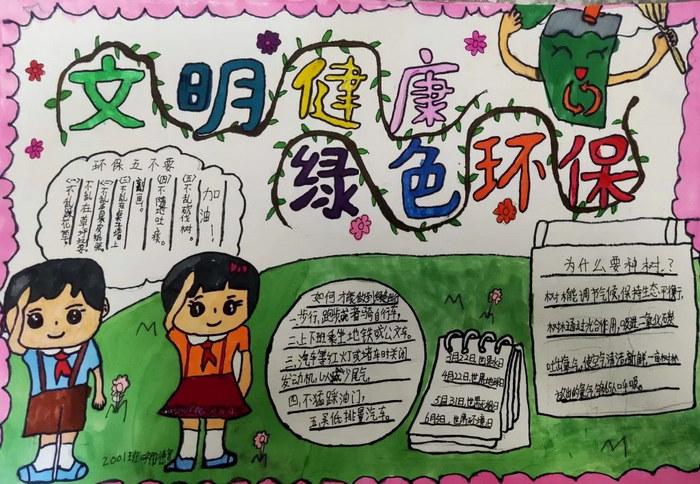 文明健康
绿色环保
环保五不要
加油！
(五)不乱砍伐树。
(四)不随地吐痰。
为什么要种树？
树木能调节气候,保持生态平衡,
树木通过光合作用,吸进二氧化碳
吐出氧气,使空气清洁新鲜,一亩树林
放出的氧气够65人呼吸。
如何才能做到
一步行,跑步或者骑自行车,
二上下班乘坐地铁或公交车。
三,汽车等红灯或堵车时关闭
发动机,以减少尾气,
四,不猛踩油门,
五买低排量汽车。
3月22日,世界水日
4月22日,世界地球日
5月31日,世界无烟日
6月5日,世界环境日
2001班